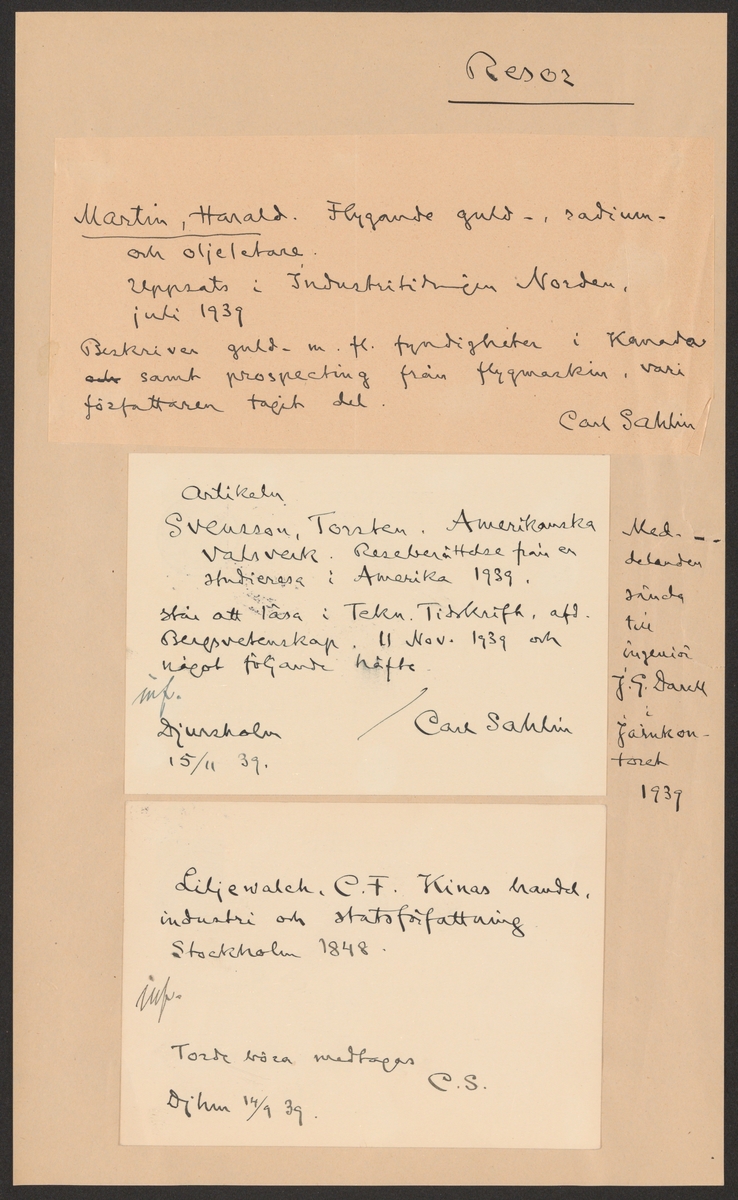 Resor
Martin, Harald. Flygande guld-, radium-
och oljeletare.
Uppsats i Industritidningen Norden,
juli 1939
Beskriver guld- m. fl. fyndigheter i Kanada
och samt prospecting från flygmaskin, vari
författaren tagit del.
Carl Sahlin
Artikeln
Svensson, Torsten. Amerikanska
valsverk. Reseberättelse från en
studieresa i Amerika 1939.
står att läsa i Tekn. Tidskrift, afd.
Bergsvetenskap, 11 Nov. 1939 och
något följande häfte.
inf.
Djursholm
15/11 39.
Carl Sahlin
Med-
delanden
sända
till
ingeniör
J. G. Darell
i
Järnkon-
toret
1939
Liljewalch, C. F. Kinas handel,
industri och statsförfattning
Stockholm 1848.
inf.
Torde böra medtagas
C.S.
Djhm 14/9 39.